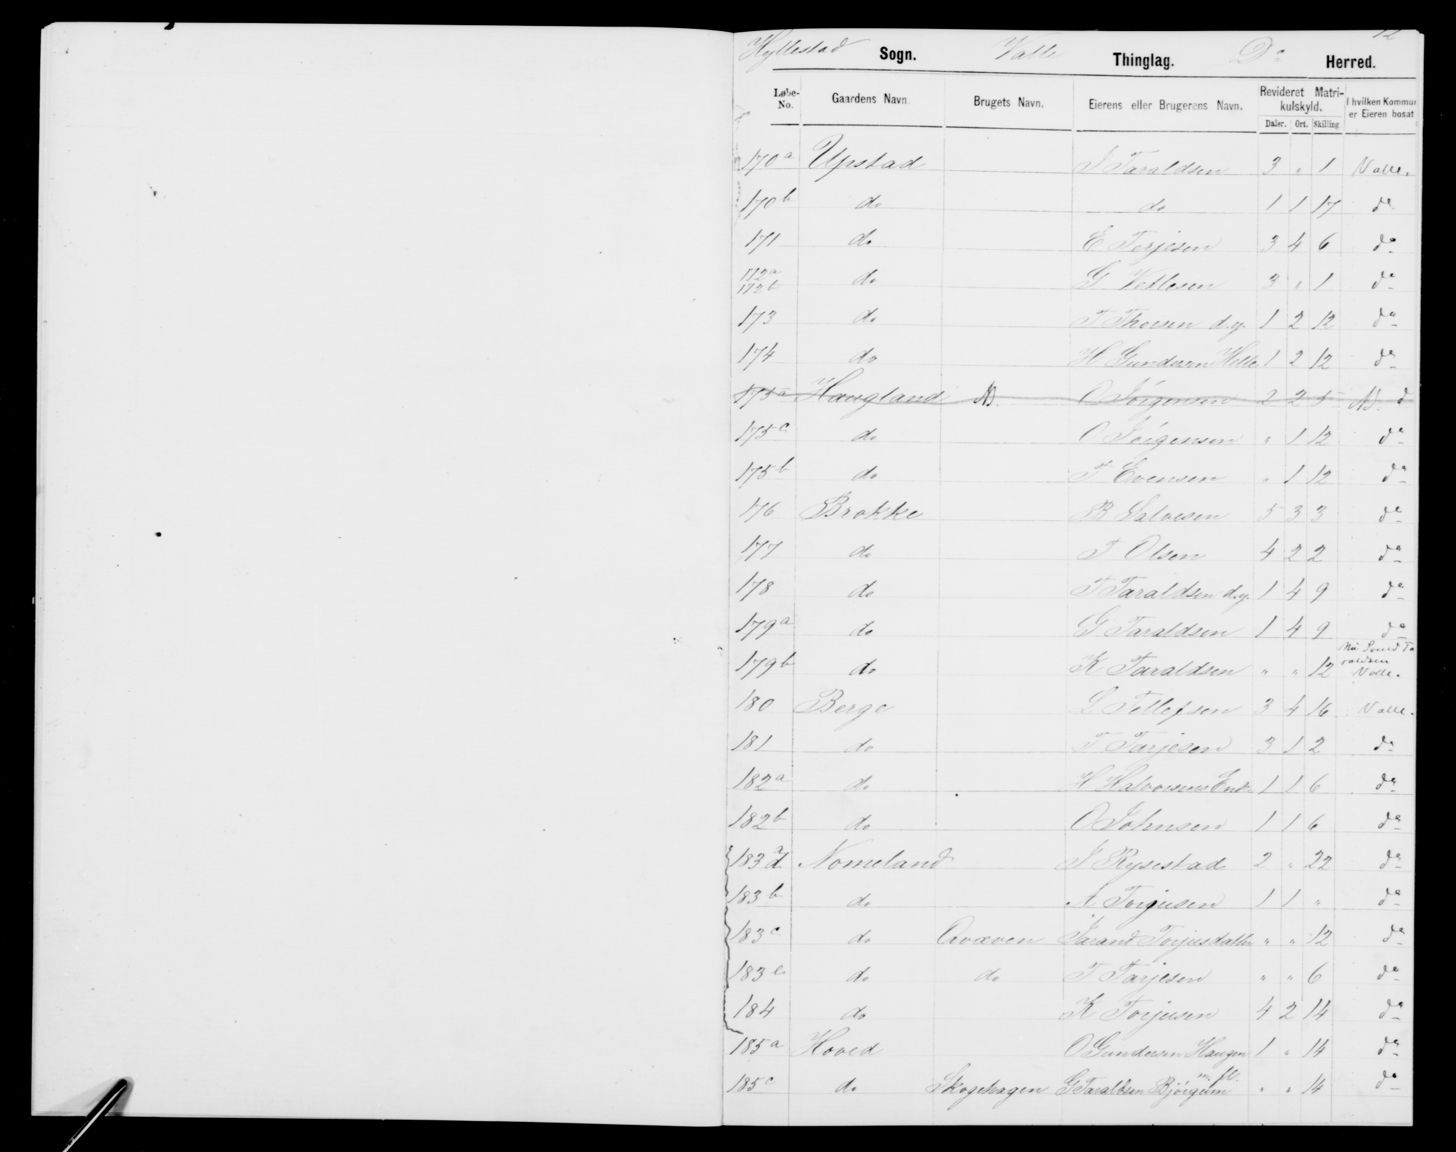 12
Hyllestad Sogn. Valle Thinglag. Do Herred.
Løbe-No. Gaardens Navn. Brugets Navn. Eierens eller Brugerens Navn. Revideret Matrikulskyld. Daler. Ort. Skilling. I hvilken Kommun er Eieren bosat
170a Upstad Taraldsen 3 " 1 Valle.
170b do do 1 1 17 do
171 do E Terjesen 3 4 6 do
172a 172b do G Vetlesen 3 " 1 do
173 do T Thorsen d.y. 1 2 12 do
174 do H Gundersen Helle 1 2 12 do
175a Haugland O Jörgensen 2 2 5 do
175c do O Jörgensen " 1 12 do
175b do T Evensen " 1 12 do
176 Brokke B Salvesen 5 3 3 do
177 do T Olsen 4 2 2 do
178 do T Taraldsen d.y. 1 4 9 do
179a do G Taraldsen 1 4 9 do
179b do K Taraldsen " " 12 Valle.
180 Berge L Tellefsen 3 4 16 Valle.
181 do T Tarjesen 3 1 2 do
182a do H Halvorsens Enke 1 1 6 do
182b do O Johnsen 1 1 6 do
183d Nomeland J Rysestad 2 " 22 do
183b do A Torjusen 1 1 " do
183c do Qvæven Jorand Torjusdatter " " 12 do
183e do do T Tarjesen " " 6 do
184 do K Torjusen 4 2 14 do
185a Hoved O Gundersen Haugen 1 " 14 do
185c do Skogehagen G Taraldsen Bjórgum m. fl. " " 14 do